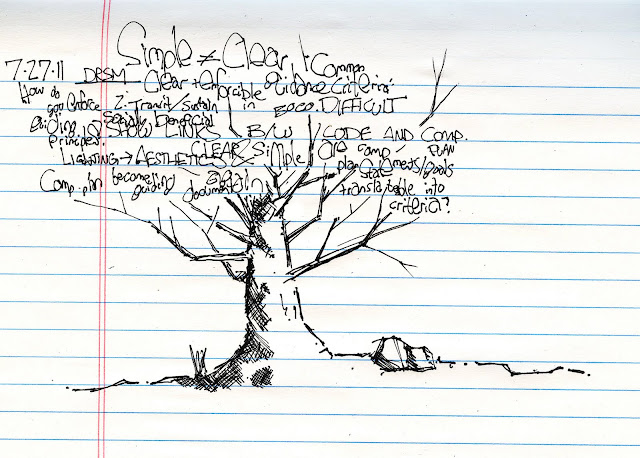 Simple ≠ Clear. + Common
7.27.11 DBSM — Clear + enforcible guidance criteria:
How do you enforce guiding principles?
2. Transit/Sustain in ZOCO. DIFFICULT
Socially beneficial
SHOW LINKS B/W CODE AND COMP. PLAN
LIGHTNING → AESTHETICS CLEAR & Simple are comp
plan statements/goals
Comp. pln becoming guiding document again
translatable into
criteria?